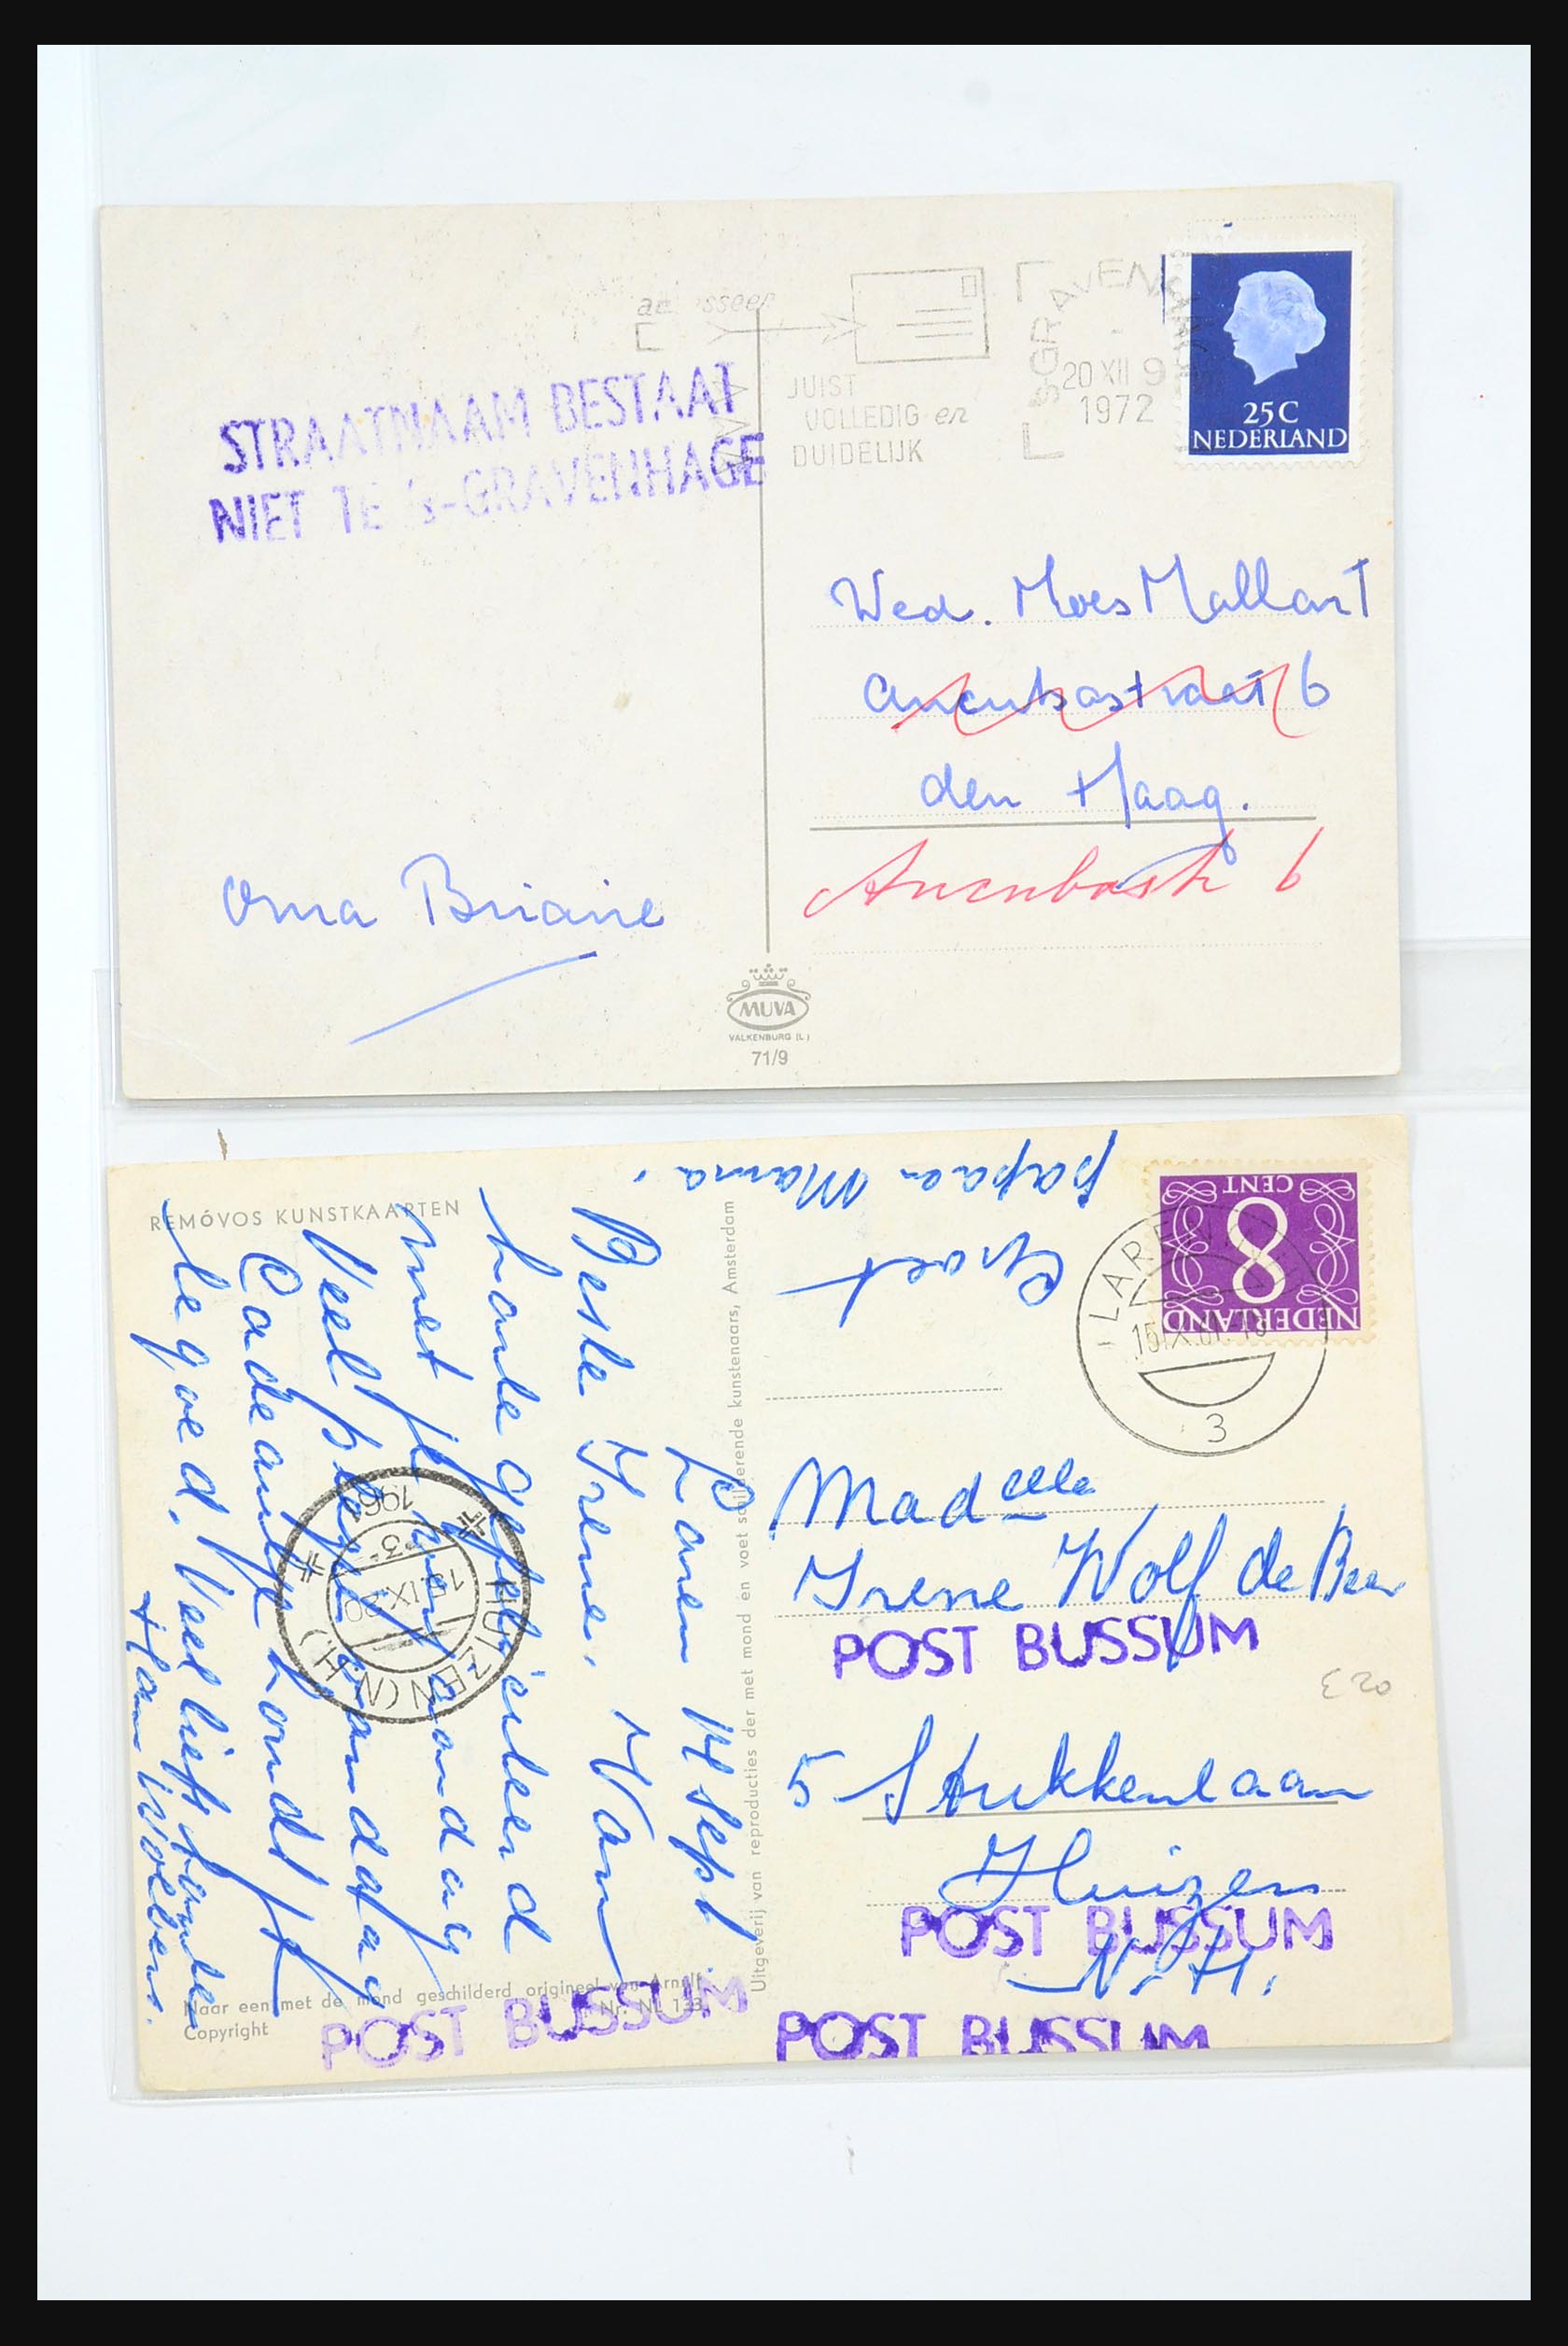 adresseer
JUIST
VOLLEDIG en
DUIDELIJK
'S-GRAVENHAGE
20 XII 9
1972
25 C
NEDERLAND
STRAATNAAM BESTAAT
NIET TE 'S-GRAVENHAGE
Wed. Moes Mallant
den Haag.
6
Oma Briaire
MUVA
VALKENBURG (L)
71/9
REMÓVOS KUNSTKAARTEN
Groet
papa en Mama.
CENT
8
NEDERLAND
LAREN
15 IX 61
3
Laren 14 Sept
Beste Irene. Van
harte gefeliciteerd
met je verjaardag
Veel
Cadeautje houdt je
te goed. Veel liefs
Uitgeverij van reproducties der met mond en voet schilderende kunstenaars, Amsterdam
HUIZEN (N.H.)
15.IX.20
196
Madelle
Irene Wolf de Beer
POST BUSSUM
5 Stukkenlaan
Huizen
POST BUSSUM
N.H.
E20
Naar een met de mond geschilderd origineel von Arnulf
Nr. NL 133
Copyright
POST BUSSUM
POST BUSSUM